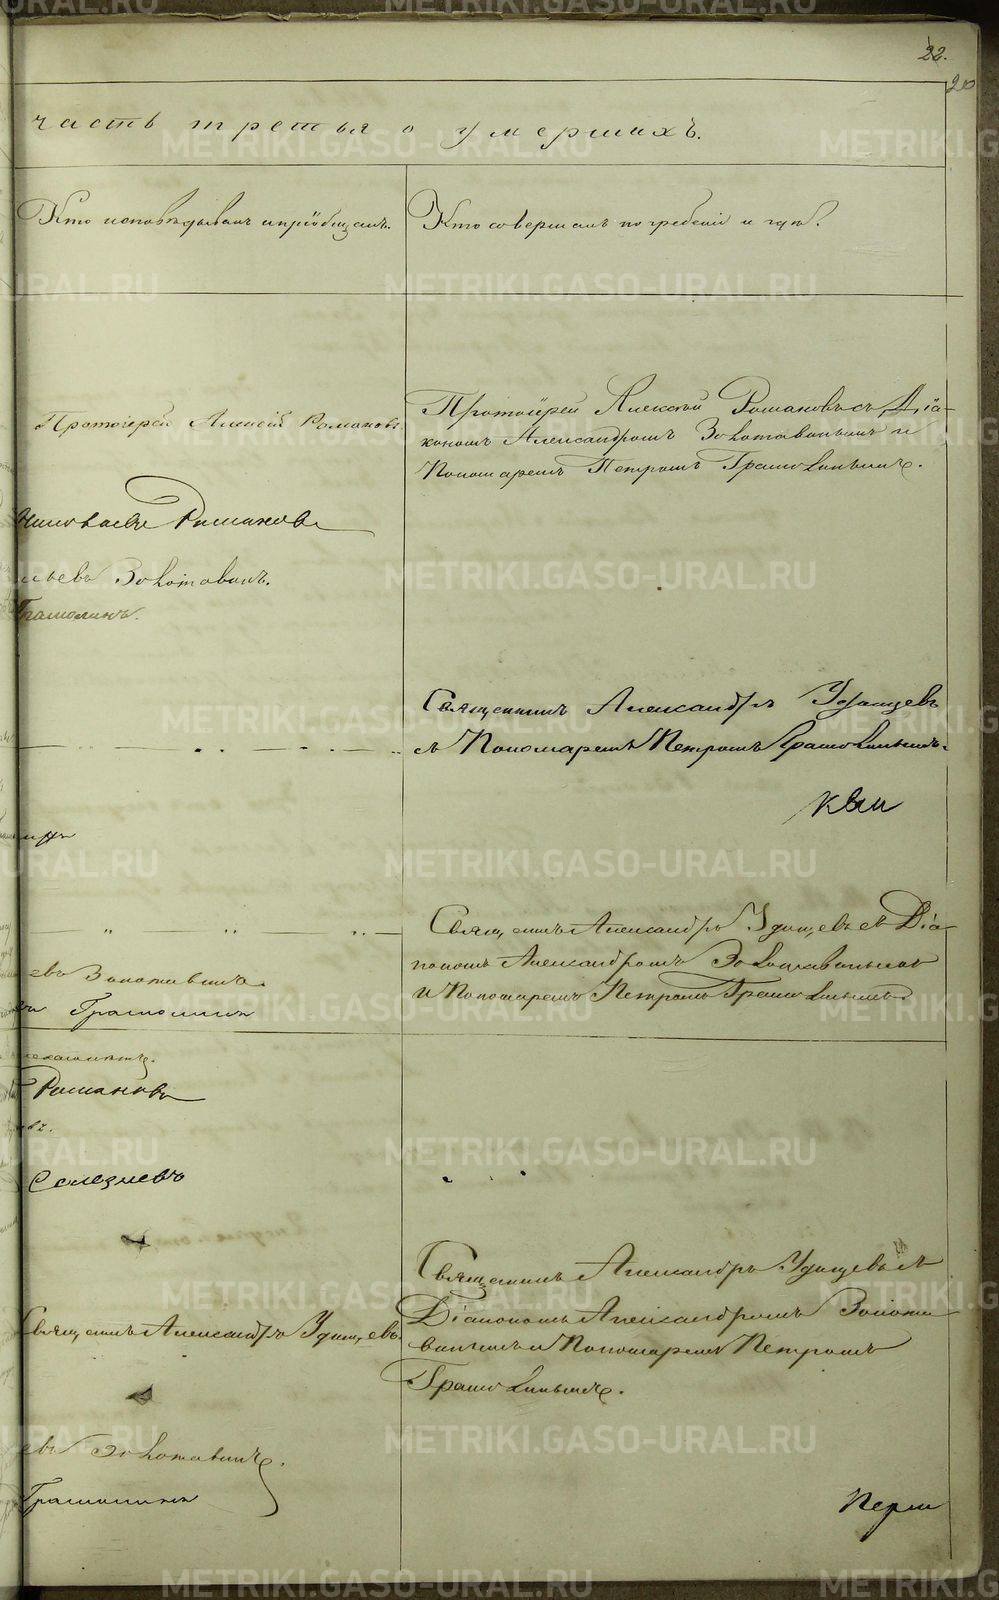 22.
20
часть третья о умершихъ.
Кто исповѣдывалъ и пріобщалъ.
Кто совершалъ погребеніе и гдѣ.
Протоіерей Алексій Романовъ
Протоіерей Алексѣй Романовъ съ Діа-
кономъ Александромъ Золотавинымъ и
Пономаремъ Петромъ Грамолинымъ.
Романовъ
Золотавинъ.
Грамолинъ.
Священникъ Александръ Удинцевъ
съ Пономаремъ Петромъ Грамолинымъ.
Священникъ Александръ Удинцевъ съ Діа-
кономъ Александромъ Золотавинымъ
и Пономаремъ Петромъ Грамолинымъ
евъ Золотавинъ.
Грамолинъ
Романовъ
Селезневъ
Священникъ Александръ Удинцевъ съ
Діакономъ Александромъ Золота-
винымъ и Пономаремъ Петромъ
Грамолинымъ.
Священникъ Александръ Удинцевъ.
евъ Золотавинъ.
Грамолинъ
METRIKI.GASO-URAL.RU